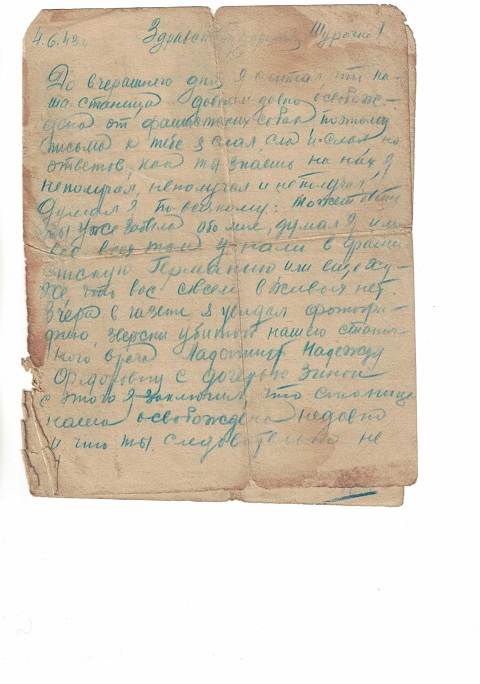 4.6.43г Здравствуй, Шурочка!
До вчерашнего дня я считал что на-
ша станица давным давно освобож-
дена от фашистских собак поэтому
письма к тебе я слал, слал и слал но
ответов, как ты знаешь на них я
неполучал, неполучал и неполучал,
Думал я по всякому: может быть
ты уже забыла обо мне, думал я или
вас всех там угнали в фаши-
стскую Германию или еще ху-
же, что вас совсем в живых нет.
Вчера в газете я увидал фотогра-
фию, зверски убитой нашего станич-
ного врача Надежду
Федоровну с дочерью Зиной
с этого я заключил, что станица
наша освобождена недавно
и что ты, следовательно не